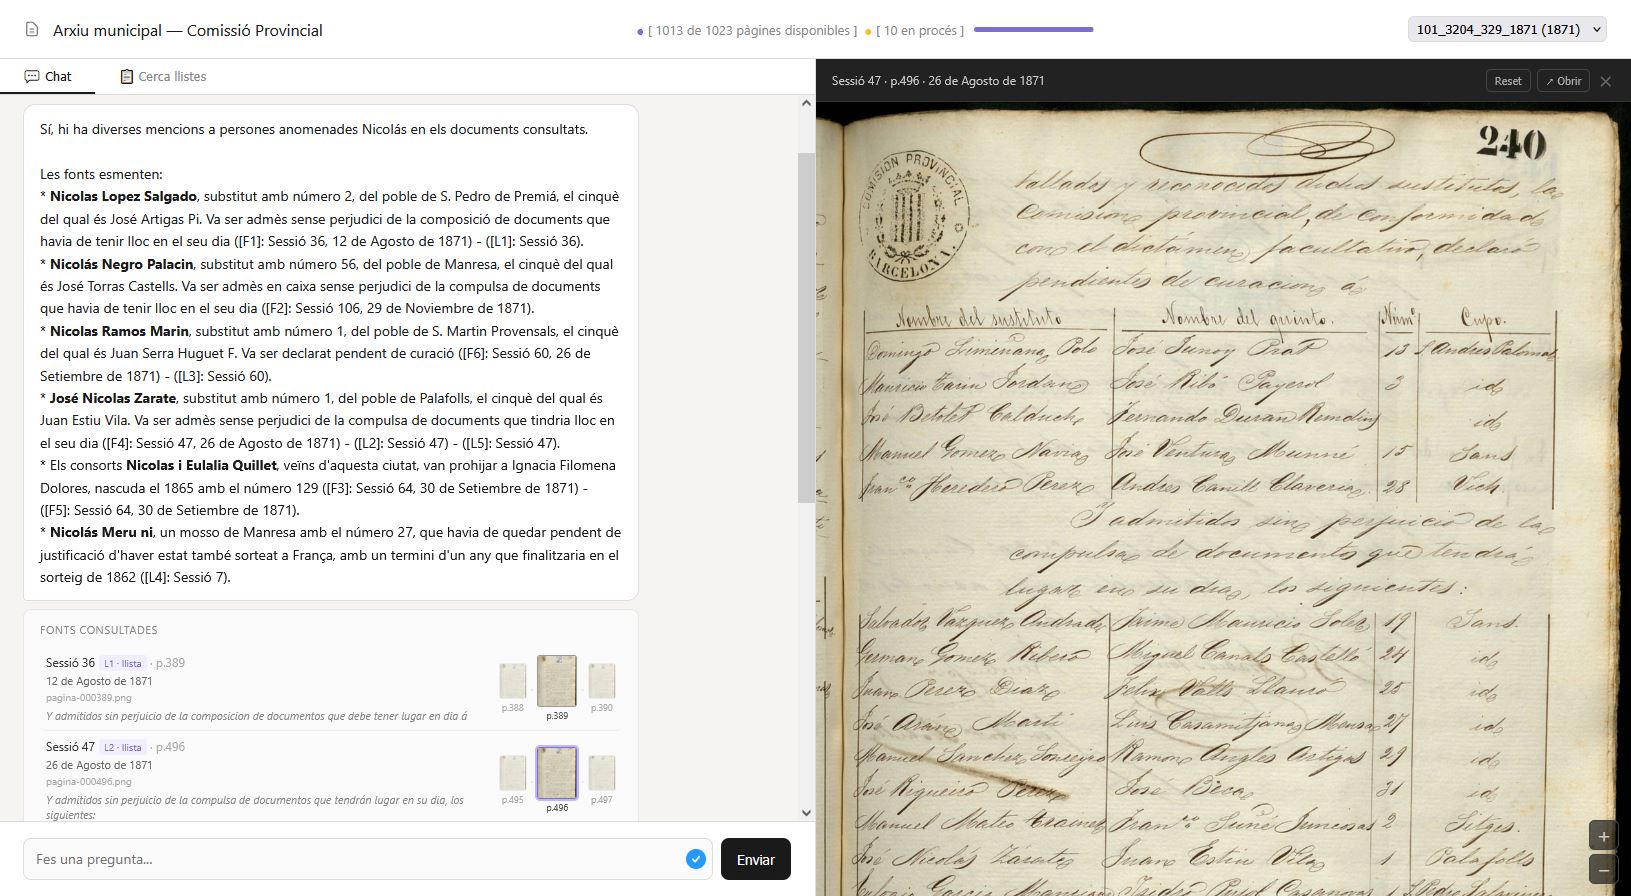 Arxiu municipal — Comissió Provincial
[ 1013 de 1023 pàgines disponibles ]
[ 10 en procés ]
101_3204_329_1871 (1871)
Chat
Cerca llistes
Sí, hi ha diverses mencions a persones anomenades Nicolás en els documents consultats.
Les fonts esmenten:
* Nicolas Lopez Salgado, substitut amb número 2, del poble de S. Pedro de Premiá, el cinquè
del qual és José Artigas Pi. Va ser admès sense perjudici de la composició de documents que
havia de tenir lloc en el seu dia ([F1]: Sessió 36, 12 de Agosto de 1871) - ([L1]: Sessió 36).
* Nicolás Negro Palacin, substitut amb número 56, del poble de Manresa, el cinquè del qual
és José Torras Castells. Va ser admès en caixa sense perjudici de la compulsa de documents
que havia de tenir lloc en el seu dia ([F2]: Sessió 106, 29 de Noviembre de 1871).
* Nicolas Ramos Marin, substitut amb número 1, del poble de S. Martin Provensals, el cinquè
del qual és Juan Serra Huguet F. Va ser declarat pendent de curació ([F6]: Sessió 60, 26 de
Setiembre de 1871) - ([L3]: Sessió 60).
* José Nicolas Zarate, substitut amb número 1, del poble de Palafolls, el cinquè del qual és
Juan Estiu Vila. Va ser admès sense perjudici de la compulsa de documents que tindria lloc en
el seu dia ([F4]: Sessió 47, 26 de Agosto de 1871) - ([L2]: Sessió 47) - ([L5]: Sessió 47).
* Els consorts Nicolas i Eulalia Quillet, veïns d'aquesta ciutat, van prohijar a Ignacia Filomena
Dolores, nascuda el 1865 amb el número 129 ([F3]: Sessió 64, 30 de Setiembre de 1871) -
([F5]: Sessió 64, 30 de Setiembre de 1871).
* Nicolás Meru ni, un mosso de Manresa amb el número 27, que havia de quedar pendent de
justificació d'haver estat també sorteat a França, amb un termini d'un any que finalitzaria en el
sorteig de 1862 ([L4]: Sessió 7).
FONTS CONSULTADES
Sessió 36 L1 · llista · p.389
12 de Agosto de 1871
pagina-000389.png
Y admitidos sin perjuicio de la composicion de documentos que debe tener lugar en dia á
p.388
p.389
p.390
Sessió 47 L2 · llista · p.496
26 de Agosto de 1871
pagina-000496.png
Y admitidos sin perjuicio de la compulsa de documentos que tendrán lugar en su dia, los
siguientes:
p.495
p.496
p.497
Fes una pregunta...
Enviar
Sessió 47 · p.496 · 26 de Agosto de 1871
Reset
↗ Obrir
240
COMISION PROVINCIAL
BARCELONA
tallados y reconocidos dichos sustitutos, la
Comision provincial, de conformidad
con el dictámen facultativo, declaró
pendientes de curacion á
Nombre del sustituto Nombre del quinto. Núm.º Cupo.
Domingo Limiñana Polo José Junoy Prat 13 S. Andres Palomar
Mauricio Tarin Jordan José Ribó Payerol 3 id
José Betolet Calduch Fernando Duran id
Manuel Gomez Navia José Ventura Munné 15 Sans
Fran.co Heredero Perez Andres Canill Claveria 28 Vich.
Y admitidos sin perjuicio de la
compulsa de documentos que tendrá
lugar en su dia, los siguientes:
Salvador Vazquez Andrade Jaime Mauricio Soler 19 Sans.
German Gomez Ribero Miguel Canals Castelló 24 id
Juan Perez Diaz Felix Valls Llauró 25 id
José Aran Martí Luis Casamitjana 27 id
Manuel Sanchez Ramon Angles Artigas 29 id
José Riqueiro Perez José Beca 31 id
Manuel Mateo Fran.co Suñé Juncosas 2 Sitges.
José Nicolás Zárate Juan Estiu Vila 1 Palafolls
Eulogio Garcia Isidro Casanovas 1 S. Pedro